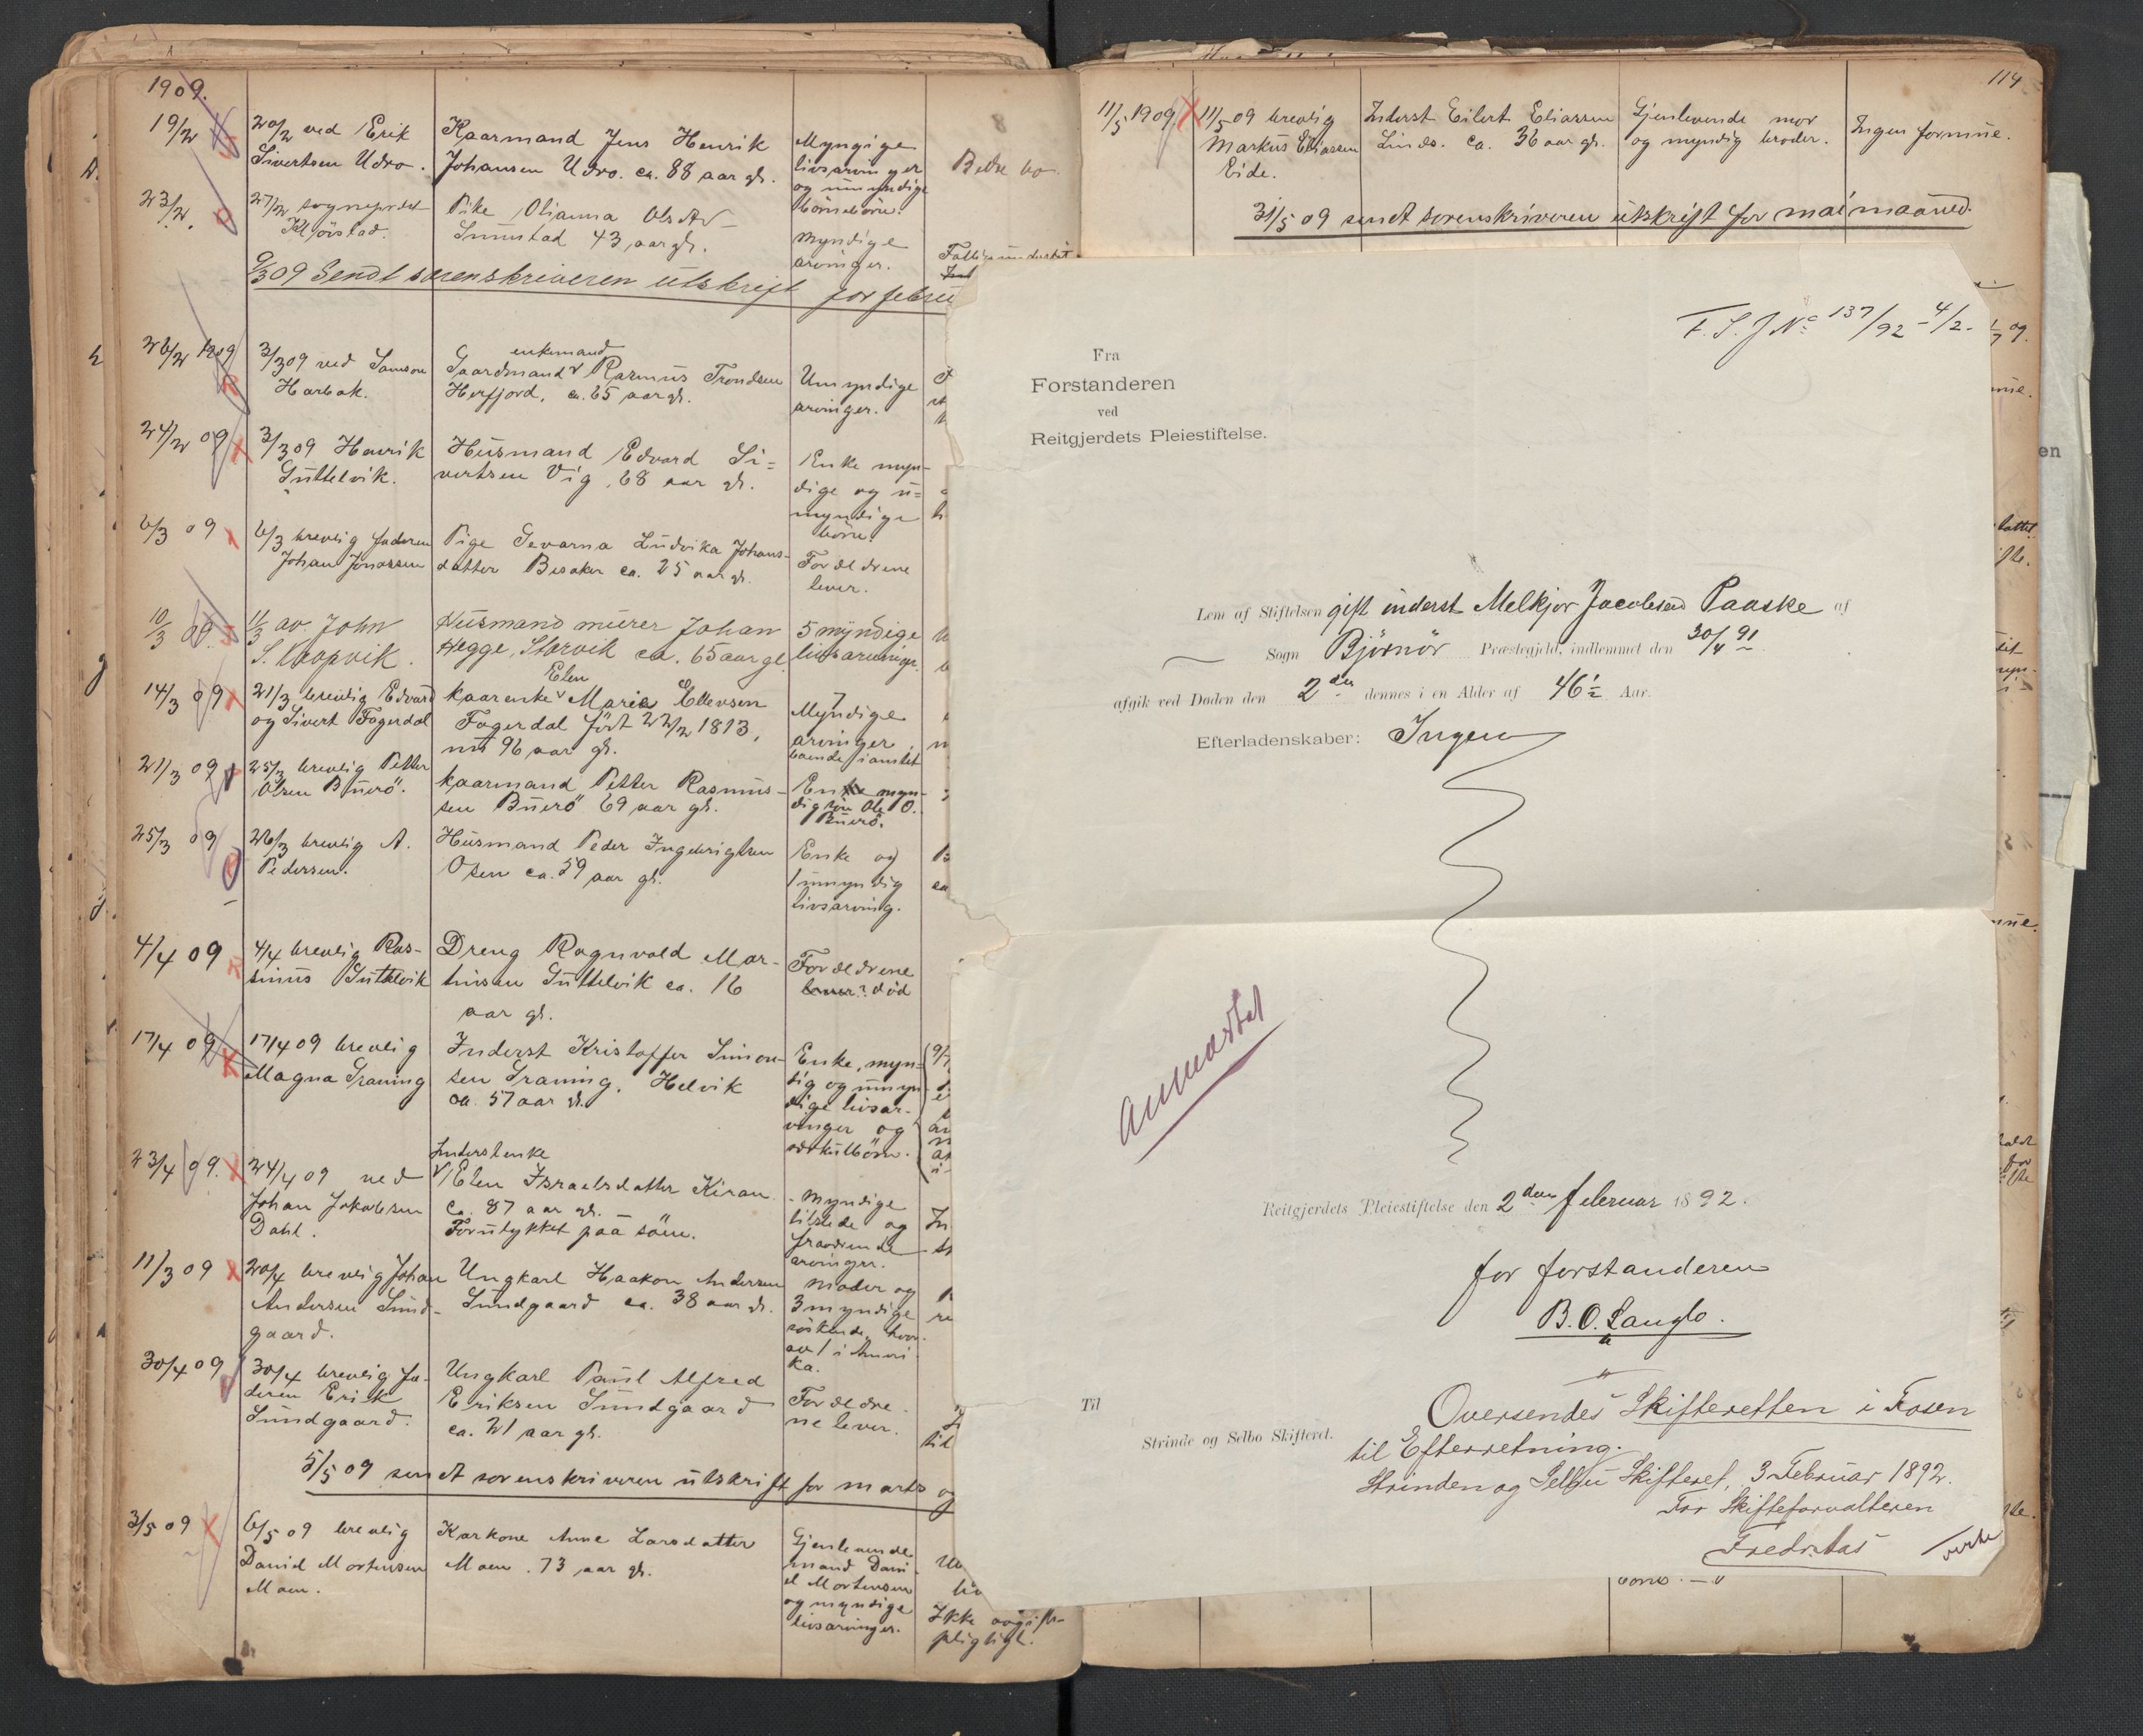 1909.
19/2
20/2 ved Erik
Sivertsen Udro.
Kaarmand Jens Henrik
Johansen Udro. ca. 88 aar gl.
Myngige
livsarvinger
og umyndige
börnebörn.
Bedre bo.
23/2.
27/2 sogneprest
Kljörstad.
Pike Olianna Olsdt
Sumstad 43 aar gl.
Myndige
arvinger.
9/3 09 Sendt sorenskriveren utskrift for febru
26/2 1909
3/3 09 ved Samson
Harbak.
enkemand
Gaardmand v Rasmus Trondsen
Herfjord, ca. 65 aar gl.
Umyndige
arvinger.
24/2 09
3/3 09 Henrik
Suttelvik.
Husmand Edvard Si=
vertsen Vig, 68 aar gl.
Enke myn-
dige og u=
myndige
börn.
6/3 09
6/3 brevlig faderen
Johan Jonassen
Pige Gevarna Ludvika Johans-
datter Besaker ca. 25 aar gl.
Forældrene
lever.
10/3 09.
11/3 av John
S. Hopvik.
Husmand murer Johan
Hegge, Storvik ca. 65 aar gl
5 myndige
livsarvinger.
14/3 09
21/3 brevlig Edvard
og Sivert Fagerdal
Elen
kaarenke v Maria Ellevsen
Fagerdal födt 22/2 1813,
nu 96 aar gl.
7
Myndige
arvinger,
boende i amtet
21/3 09
25/3 brevlig Petter
Olsen Buerö.
kaarmand Petter Rasmus-
sen Buerö 69 aar gl.
Enke myn-
dig sön Ole O.
Buerö.
25/3 09
26/3 brevlig A.
Pedersen.
Husmand Peder Ingebrigtsen
Osen ca. 59 aar gl.
Enke og
1 umyndig
livsarving.
4/4 09
4/4 brevlig Ras-
mus Suttelvik
Dreng Ragnvald Mar-
tinsen Suttelvik ca. 16
aar gl.
Forældrene
lever? död
17/4 09
17/4 09 brevlig
Magna Graning
Inderst Kristoffer Simon-
sen Graning, Helvik
ca. 57 aar gl.
Enke, myn=
dig og umyn-
dige livsar-
vinger og
særkulbörn.
23/4 09.
24/4 09 ved
Johan Jakobsen
Dahl.
Inderstenke
v Elen Israelsdatter Kiran
ca. 87 aar gl.
Forulykket paa söen.
Myndige
tilstede og
fraværende
arvinger.
11/3 09
20/4 brevlig Johan
Andersen Sund-
gaard.
Ungkarl Haakon Andersen
Sundgaard ca. 38 aar gl.
Moder og
3 myndige
söskende, hvor-
av 1 i Ameri-
ka.
30/4 09
30/4 brevlig fa-
deren Erik
Sundgaard.
Ungkarl Paul Alfred
Eriksen Sundgaard
ca. 21 aar gl.
Forældre-
ne lever.
5/5 09 sendt sorenskriveren utskrift for marts og
3/5 09
6/5 09 brevlig
Daniel Mortensen
Moen.
Karkone Anne Larsdatter
Moen. 73 aar gl.
Gjenlevende
mand Dani-
el Mortensen
og myndige
livsarvinger.
Ikke avgifts-
pligtigt.
114
11/5 1909
11/5 09 brevlig
Markus Eliassen
Eide.
Inderst Eilert Eliassen
Linds. ca. 36 aar gl.
Gjenlevende mor
og myndig broder.
Ingen formue.
31/5 09 sendt sorenskriveren utskrift for mai maaned.
F. S. J No 137/92 - 4/2 -
Fra
Forstanderen
ved
Reitgjerdets Pleiestiftelse.
Lem af Stiftelsen gift inderst Melkjor Jacobsen Paaske af
Sogn Björnör Præstegjeld, indlemmet den 30/4 91
afgik ved Døden den 2den dennes i en Alder af 46½ Aar.
Efterladenskaber: Ingen
anmærket
Reitgjerdets Pleiestiftelse den 2den februar 1892.
for forstanderen
B. O. Langlo.
Til
Strinde og Selbo Skifteret.
Oversendes Skifteretten i Fosen
til Efterretning.
Strinden og Selbu Skifteret, 3 Februar 1892.
For Skifteforvalteren
Fredr. Aas
verte